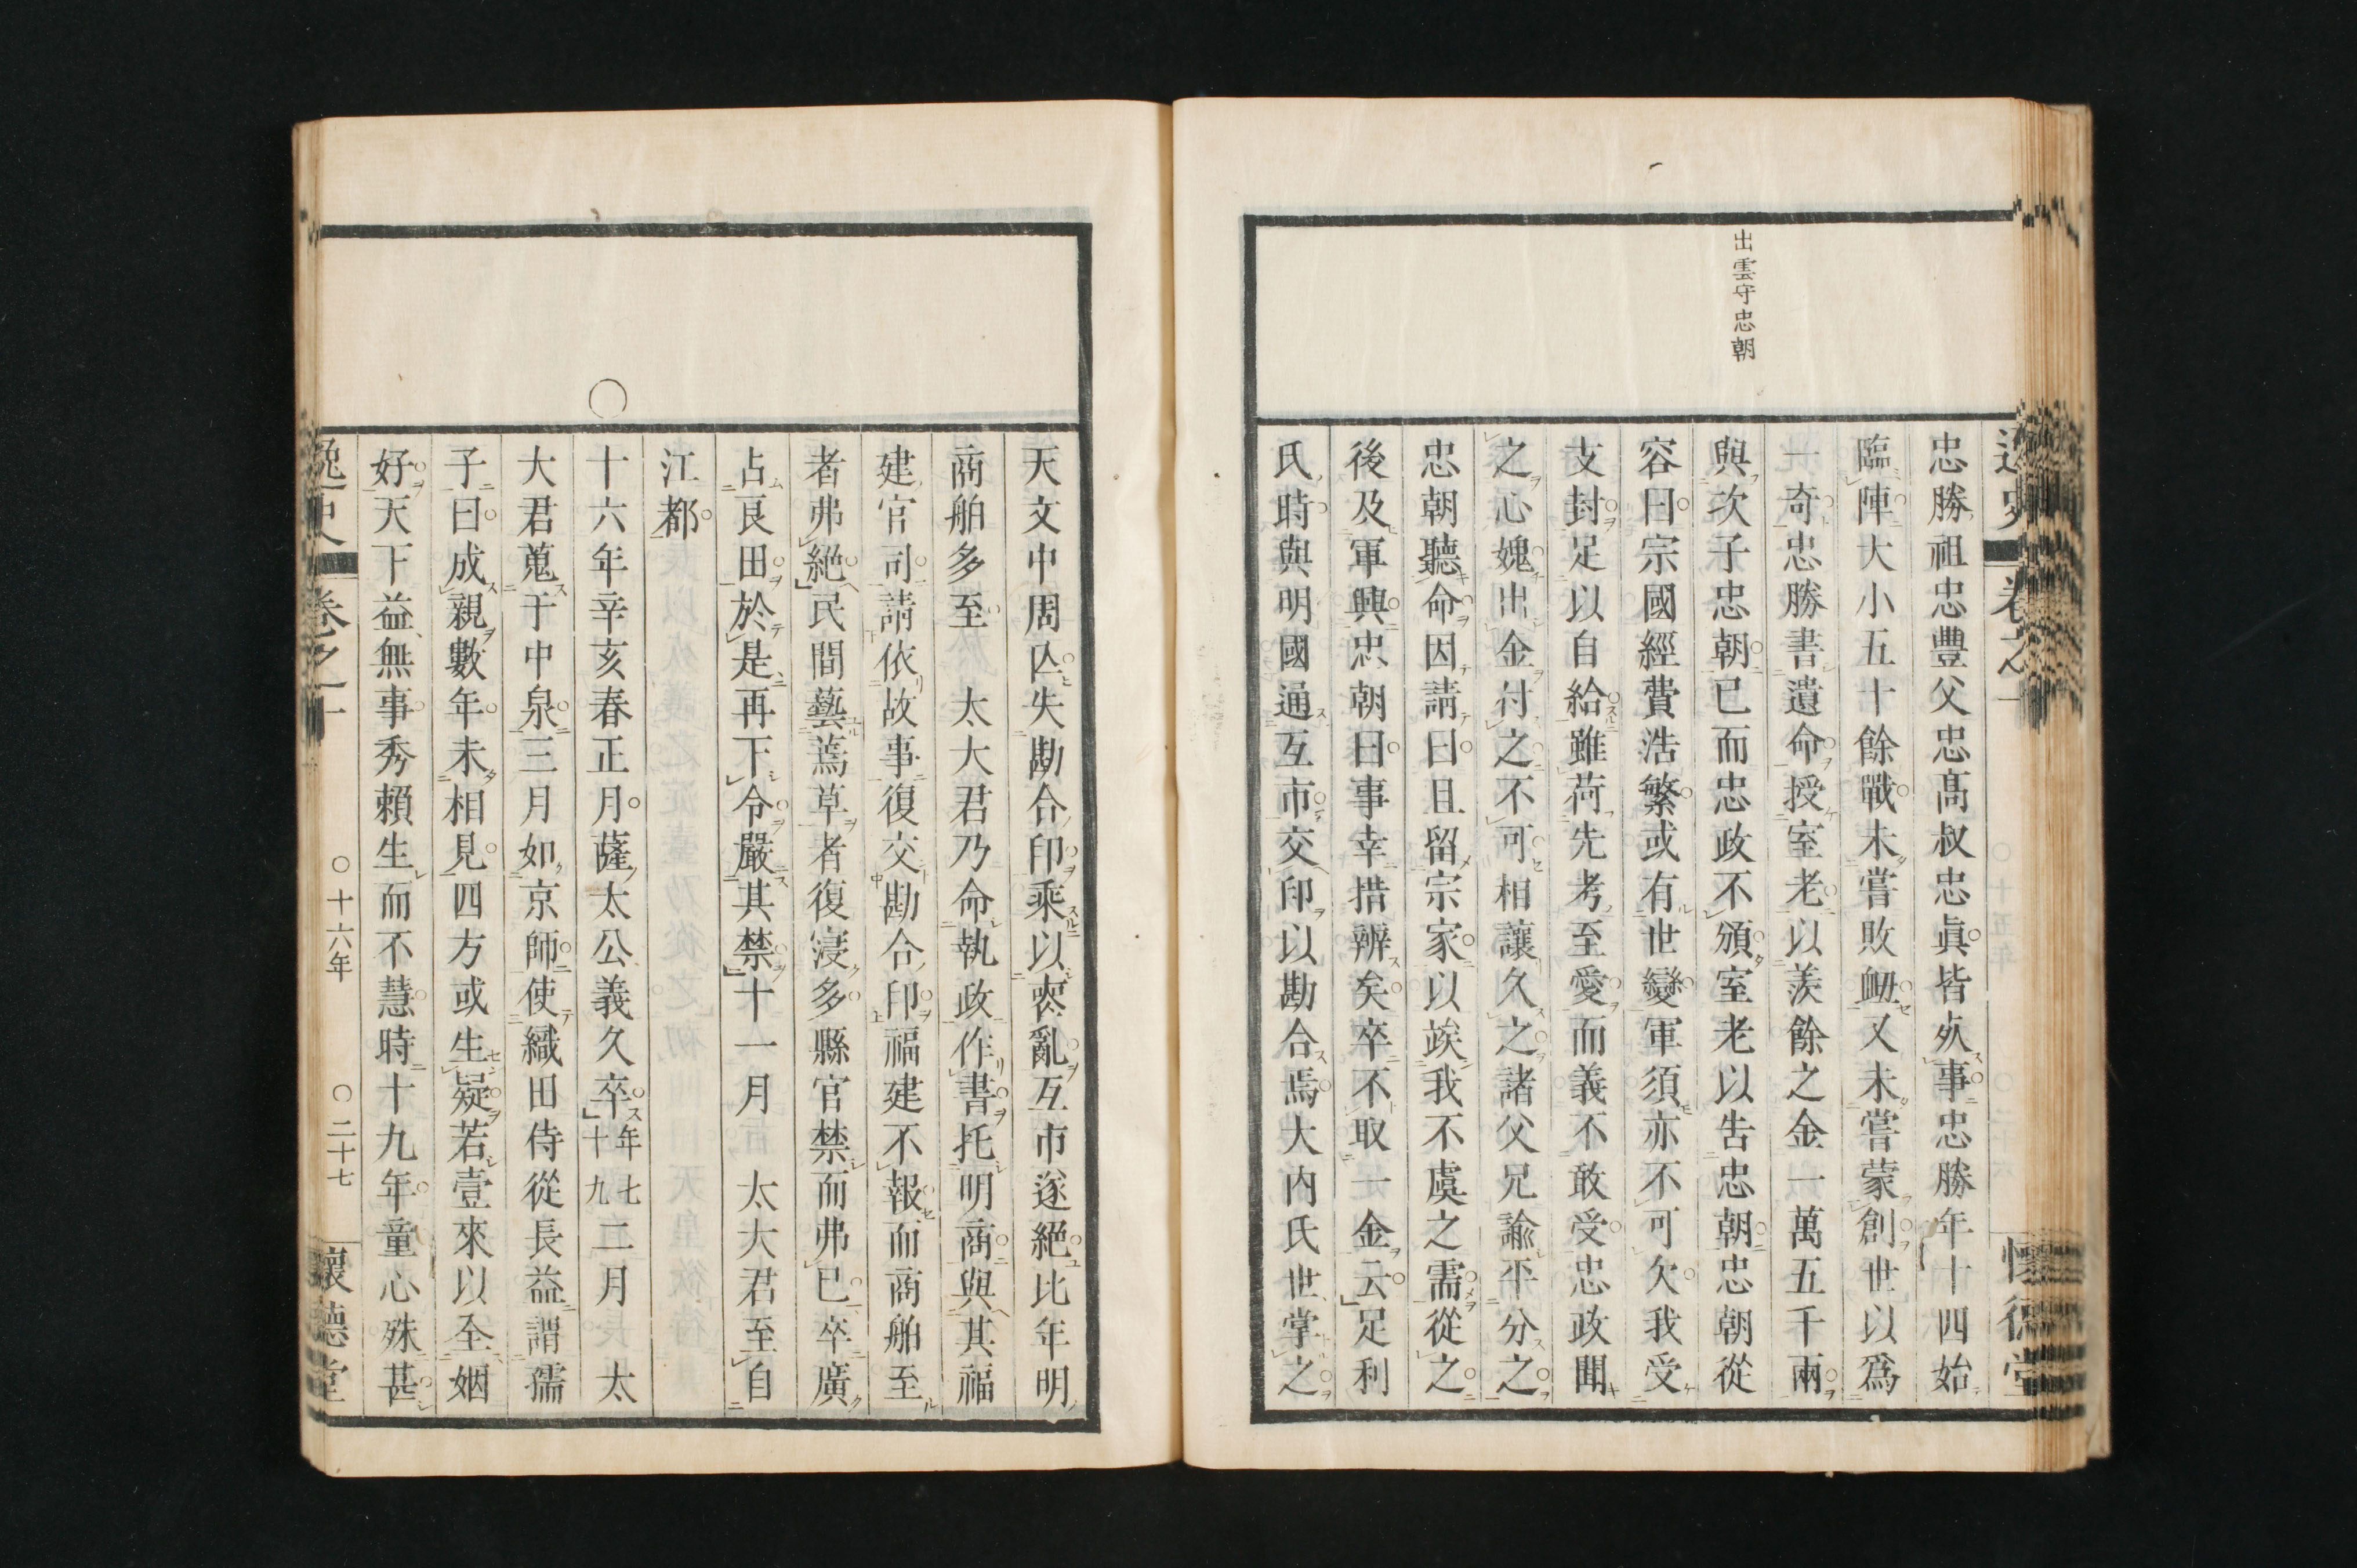 出雲守忠朝
忠勝祖忠豊父忠髙叔忠眞皆死事忠勝年十四始
臨陣大小五十餘戰未嘗敗衄又未嘗蒙創世以爲
一奇忠勝書遺命授室老以羨餘之金一萬五千兩
與次子忠朝已而忠政不頒室老以告忠朝忠朝從
容曰宗國經費浩繁或有世變軍須亦不可欠我受
支封足以自給雖荷先考至愛而義不敢受忠政聞
之心媿出金付之不可相讓久之諸父兄諭平分之
忠朝聽命因請曰且留宗家以竢我不虞之需從之
後及軍興忠朝曰事幸措辨矣卒不取一金云足利
氏時與明國通互市交印以勘合焉大内氏世掌之
天文中周亾失勘合印乘以喪亂互市遂絕比年明
商舶多至 太大君乃命執政作書托明商與其福
建官司請依故事復交勘合印福建不報而商舶至
者弗絕民間藝蔫草者復寖多縣官禁而弗已卒廣
占良田於是再下令嚴其禁十一月 太大君至自
江都
○
十六年辛亥春正月薩太公義久卒年七十九二月 太
大君蒐于中泉三月如京師使織田侍從長益謂孺
子曰成親數年未相見四方或生疑若壹來以全姻
好天下益無事秀賴生而不慧時十九年童心殊甚
逸史 卷之十 ○十六年 ○二十七 懷德堂